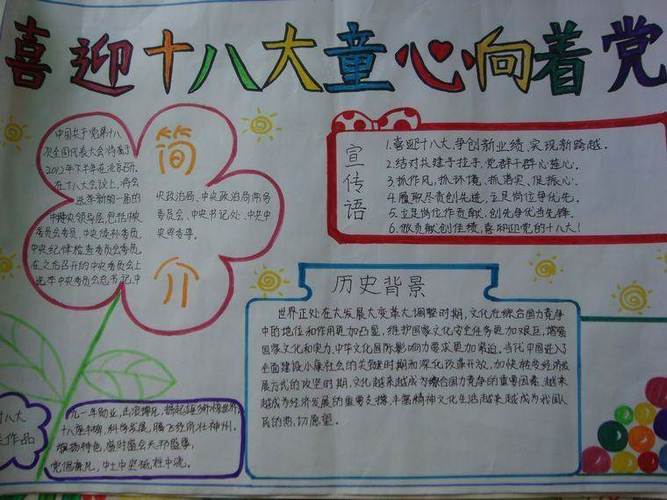 喜迎十八大童心向着党
中国共产党第十八
次全国代表大会将会于
2012年下半年在北京召开。
在十八大会议上,将会
选举新的一届的
中央领导层,包括中央
委员会委员、中央候补委员、
中央纪律检查委员会委员。
在之后召开的中央委员会上
选举中央委员会总书记、中
简
介
央政治局、中央政治局常务
委员会、中央书记处、中共中
央军委等。
宣传语
1.喜迎十八大,争创新业绩,实现新跨越。
2.结对共建手拉手,党群干群心连心。
3.抓作风,抓环境,抓落实,促振心。
4.履职尽责创先进,立足岗位争优先。
5.立足岗位作贡献,创先争优当先锋。
6.做贡献创佳绩,喜迎党的十八大!
历史背景
世界正处在大发展大变革大调整时期,文化在综合国力竞争
中的地位和作用更加凸显,维护国家文化安全任务更加艰巨,增强
国家文化软实力、中华文化国际影响力要求更加紧迫。当代中国进入了
全面建设小康社会的关键时期和深化改革开放、加快转变经济发
展方式的攻坚时期,文化越来越成为综合国力竞争的重要因素、越来
越成为经济发展的重要支撑,丰富精神文化生活越来越成为我国人
民的热切愿望。
十八大
作品
十八届丰碑,科学发展,腾飞经济壮神州。